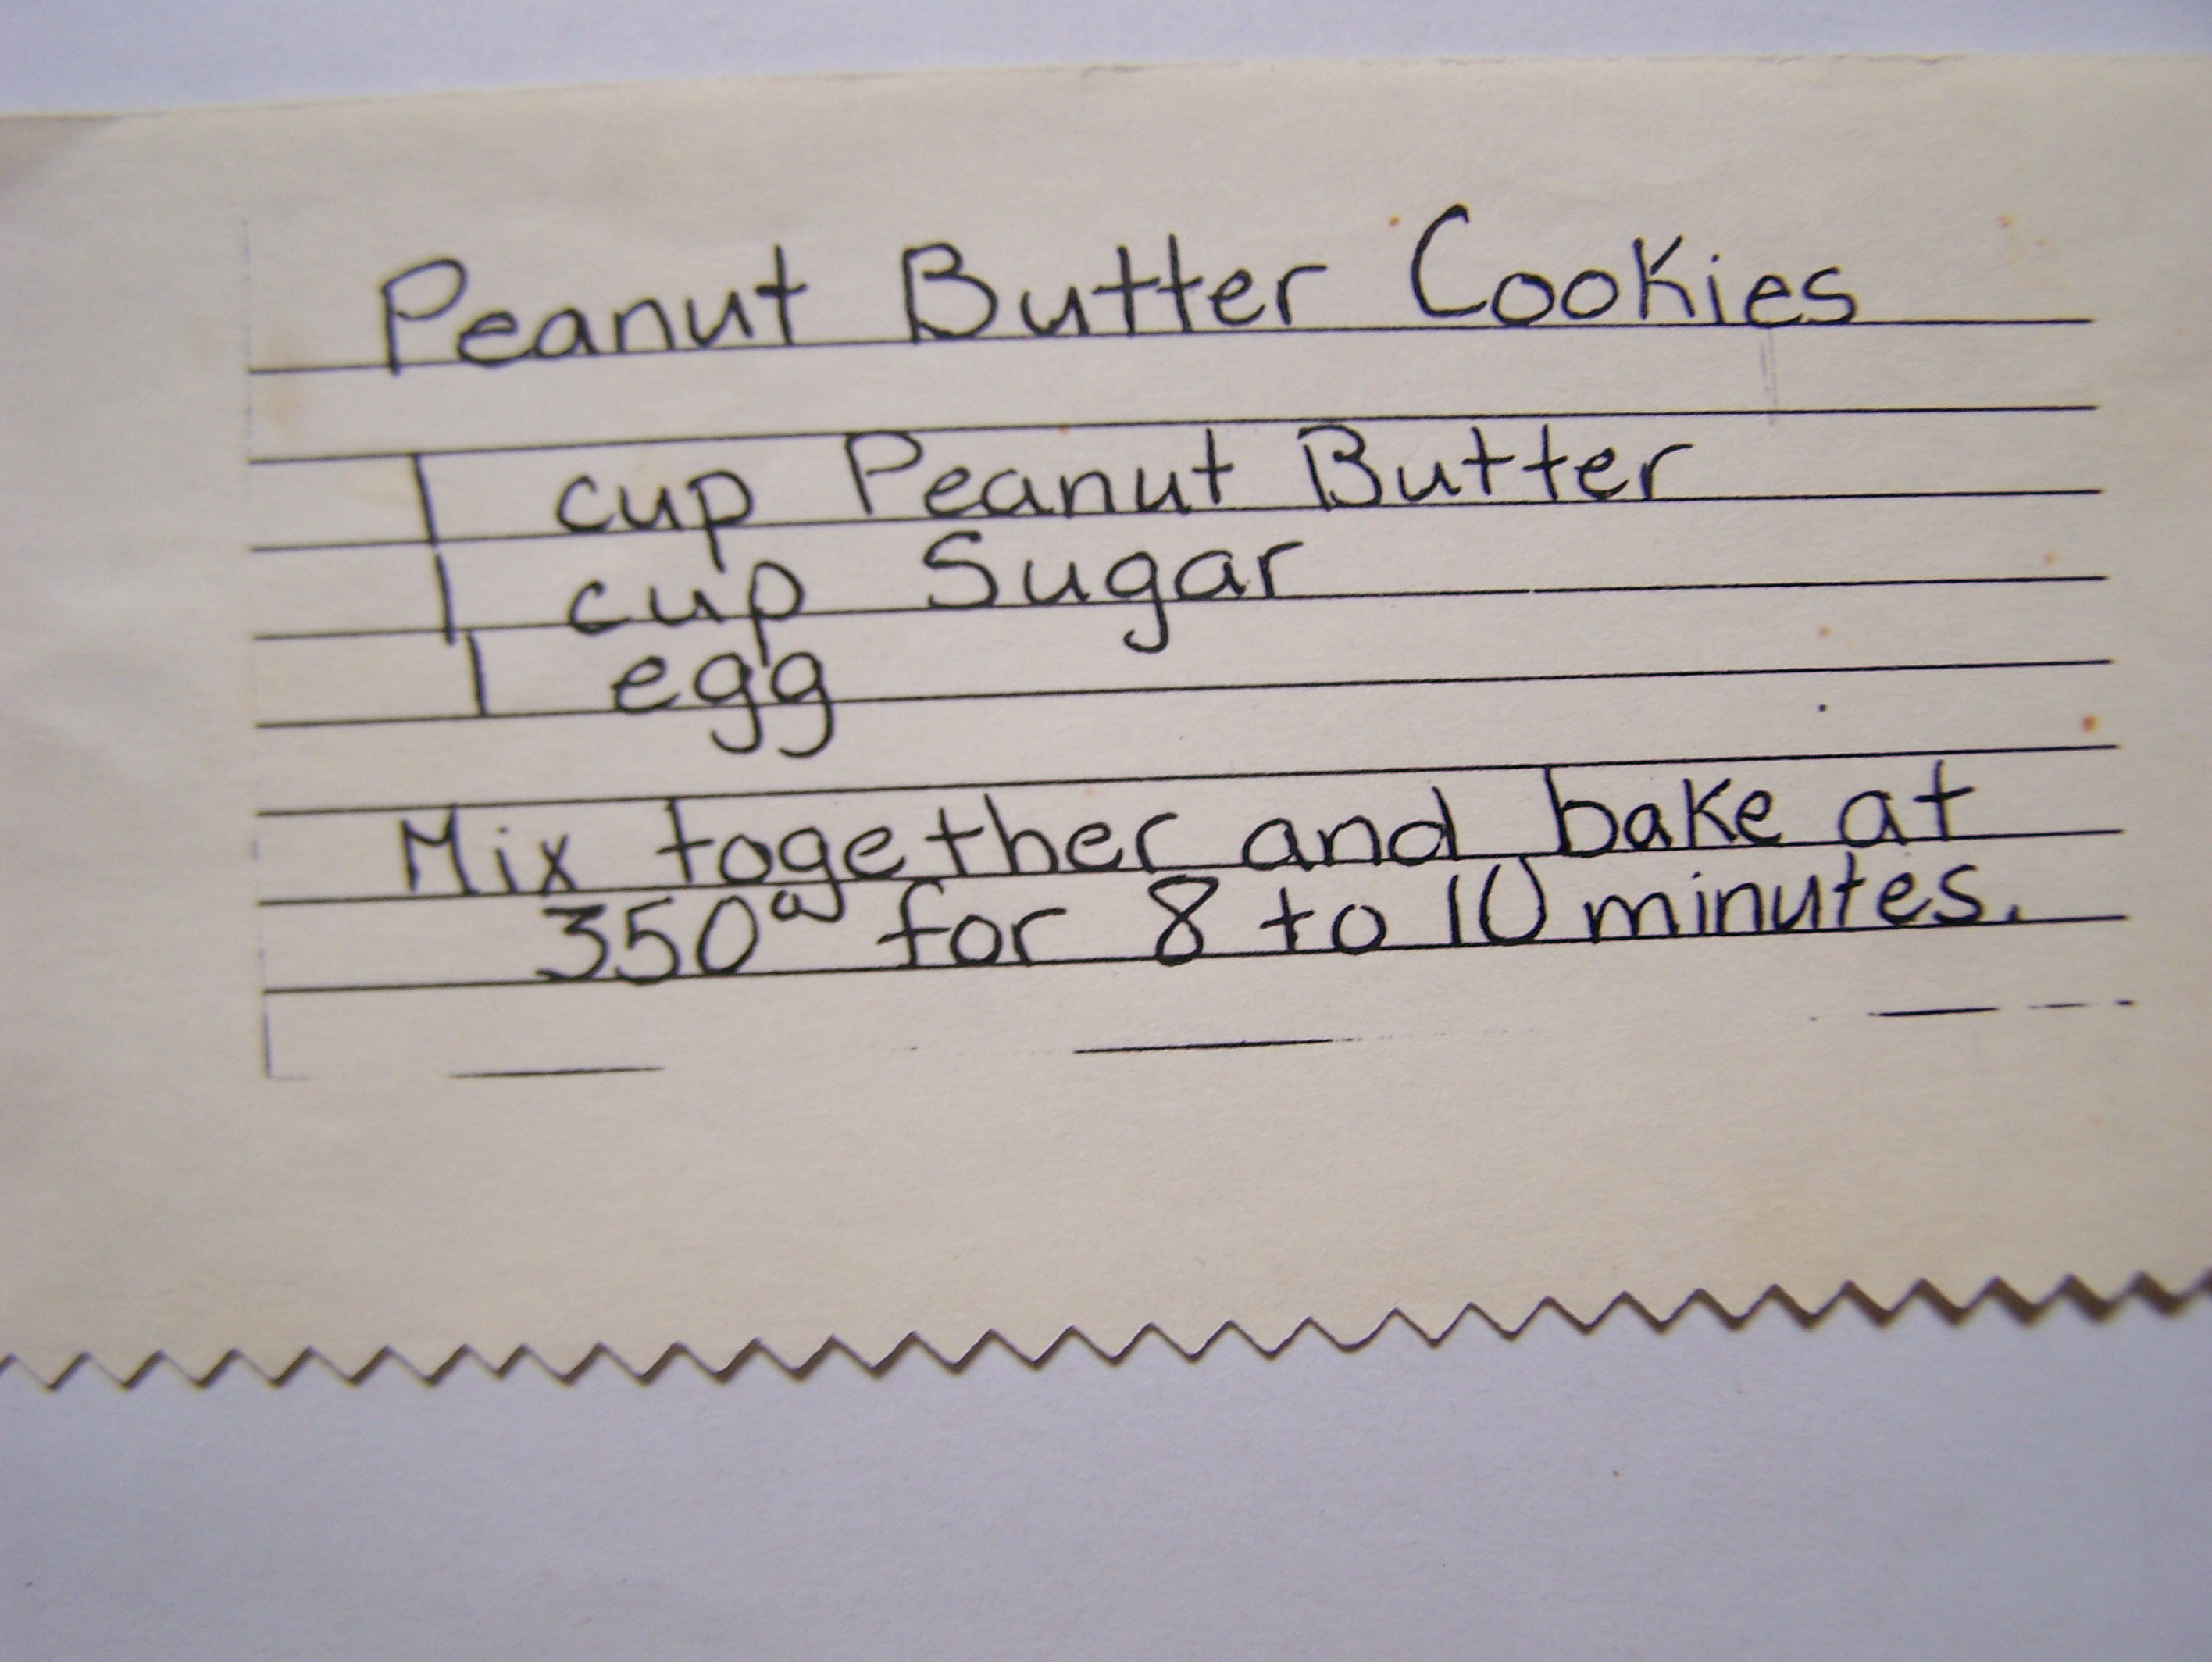 Peanut Butter Cookies
1 cup Peanut Butter
1 cup Sugar
1 egg
Mix together and bake at
350° for 8 to 10 minutes.